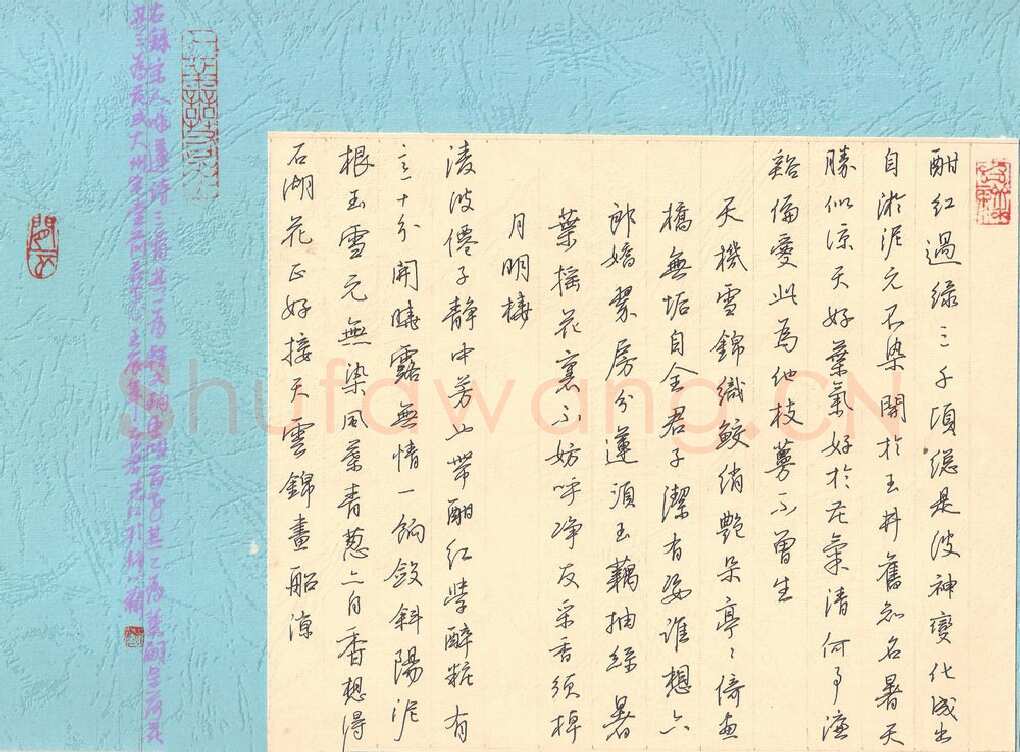 酣紅過綠三千頃總是波神變化成出
自淤泥元不染開於玉井舊知名暑天
勝似涼天好葉氣好於花氣清何事濂
谿偏愛此為他枝蔓不曾生
天機雪錦織鮫綃艷朵亭〻倚畫
橋無垢自全君子潔有姿誰想六
郎嬌翠房分蓮須玉藕抽絲暑
葉搖花裏不妨呼淨友采香須棹
月明橈
淩波僊子靜中芳也帶酣紅學醉粧有
意十分開曉露無情一餉斂斜陽泥
根玉雪元無染風葉青蔥亦自香想得
石湖花正好接天雲錦畫船涼
右錄宋人詠蓮詩三首其一為
其三為范成大州宅堂前荷花 壬辰年
Shufawang.CN